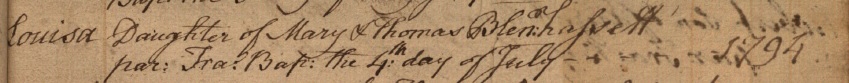 Louisa Daughter of Mary & Thomas Blennerhassett
par: Fra: Bap: the 4th day of July - 1794